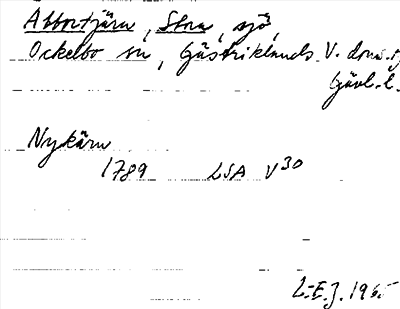 Abbortjärn, Stora, sjö,
Ockelbo sn, Gästriklands V. doms.
Gävl. l.
Nykärn
1789 LSA V30
L-E.J. 1965